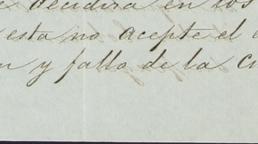 decidira en los
esta no acepte el
y falta de la